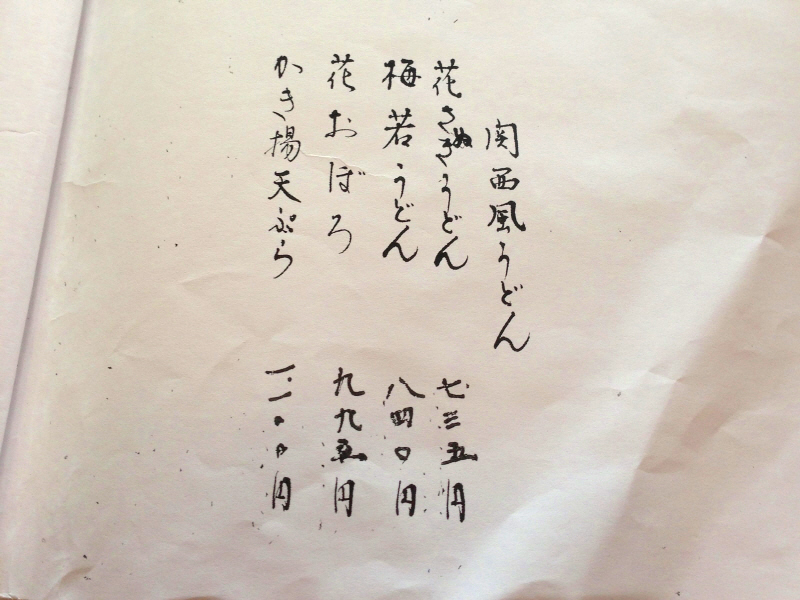 関西風うどん
花きぬさうどん 七三五円
梅若うどん 八四〇円
花おぼろ 九九五円
かき揚天ぷら 一、一〇〇円